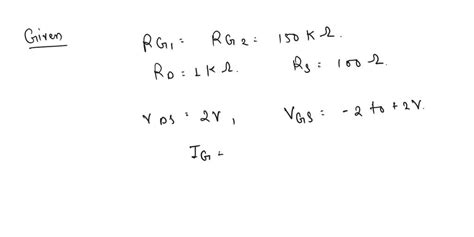 Given
RG1 = RG2 = 150 K Ω.
RD = 1 K Ω. RS = 100 Ω.
VDS = 2V, VGS = -2 to +2V.
IG